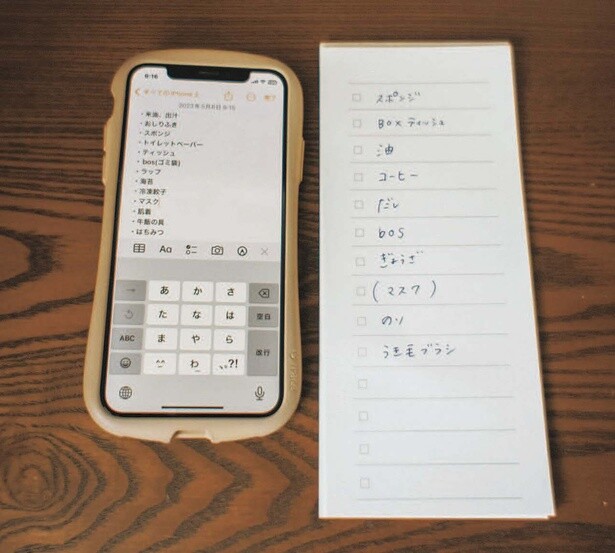 6:16
すべてのiPhone上
完了
2023年5月8日 6:16
・米油、出汁
・おしりふき
・スポンジ
・トイレットペーパー
・ティッシュ
・bos(ゴミ袋)
・ラップ
・海苔
・冷凍餃子
・マスク
・肌着
・牛飯の具
・はちみつ
Aa
→ あ か さ
た な は 空白
ABC ま や ら
^^ わ 、。?! 改行
スポンジ
BOXティッシュ
油
コーヒー
だし
bos
ぎょうざ
(マスク)
のり
うま毛ブラシ